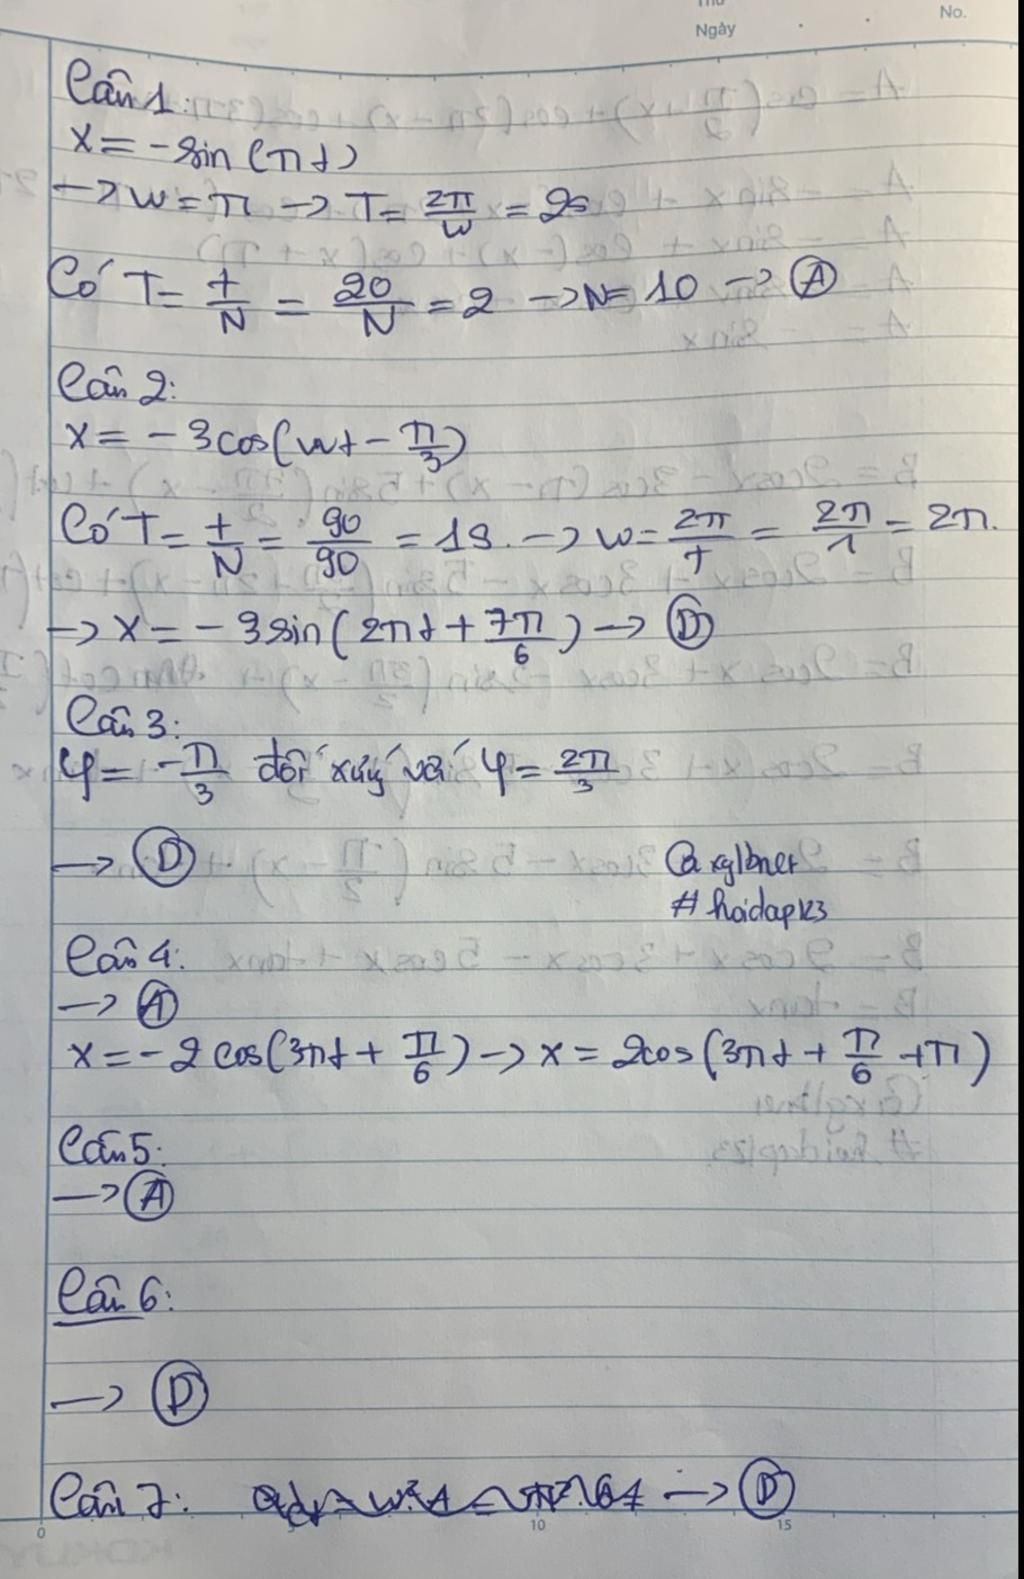 Thứ
Ngày
No.
Câu 1:
x = -sin(πt)
→ w = π → T = 2π/w = 2s
Có T = t/N = 20/N = 2 → N = 10 → A
Câu 2:
x = -3cos(wt - π/3)
Có T = t/N = 90/90 = 1s. → w = 2π/T = 2π/1 = 2π.
→ x = -3sin(2πt + 7π/6) → D
Câu 3:
φ = -π/3 đối xứng với φ = 2π/3
→ D
@xglbner
#hoidap123
Câu 4:
→ A
x = -2cos(3πt + π/6) → x = 2cos(3πt + π/6 + π)
Câu 5:
→ A
Câu 6:
→ D
Câu 7: → D
0 5 10 15